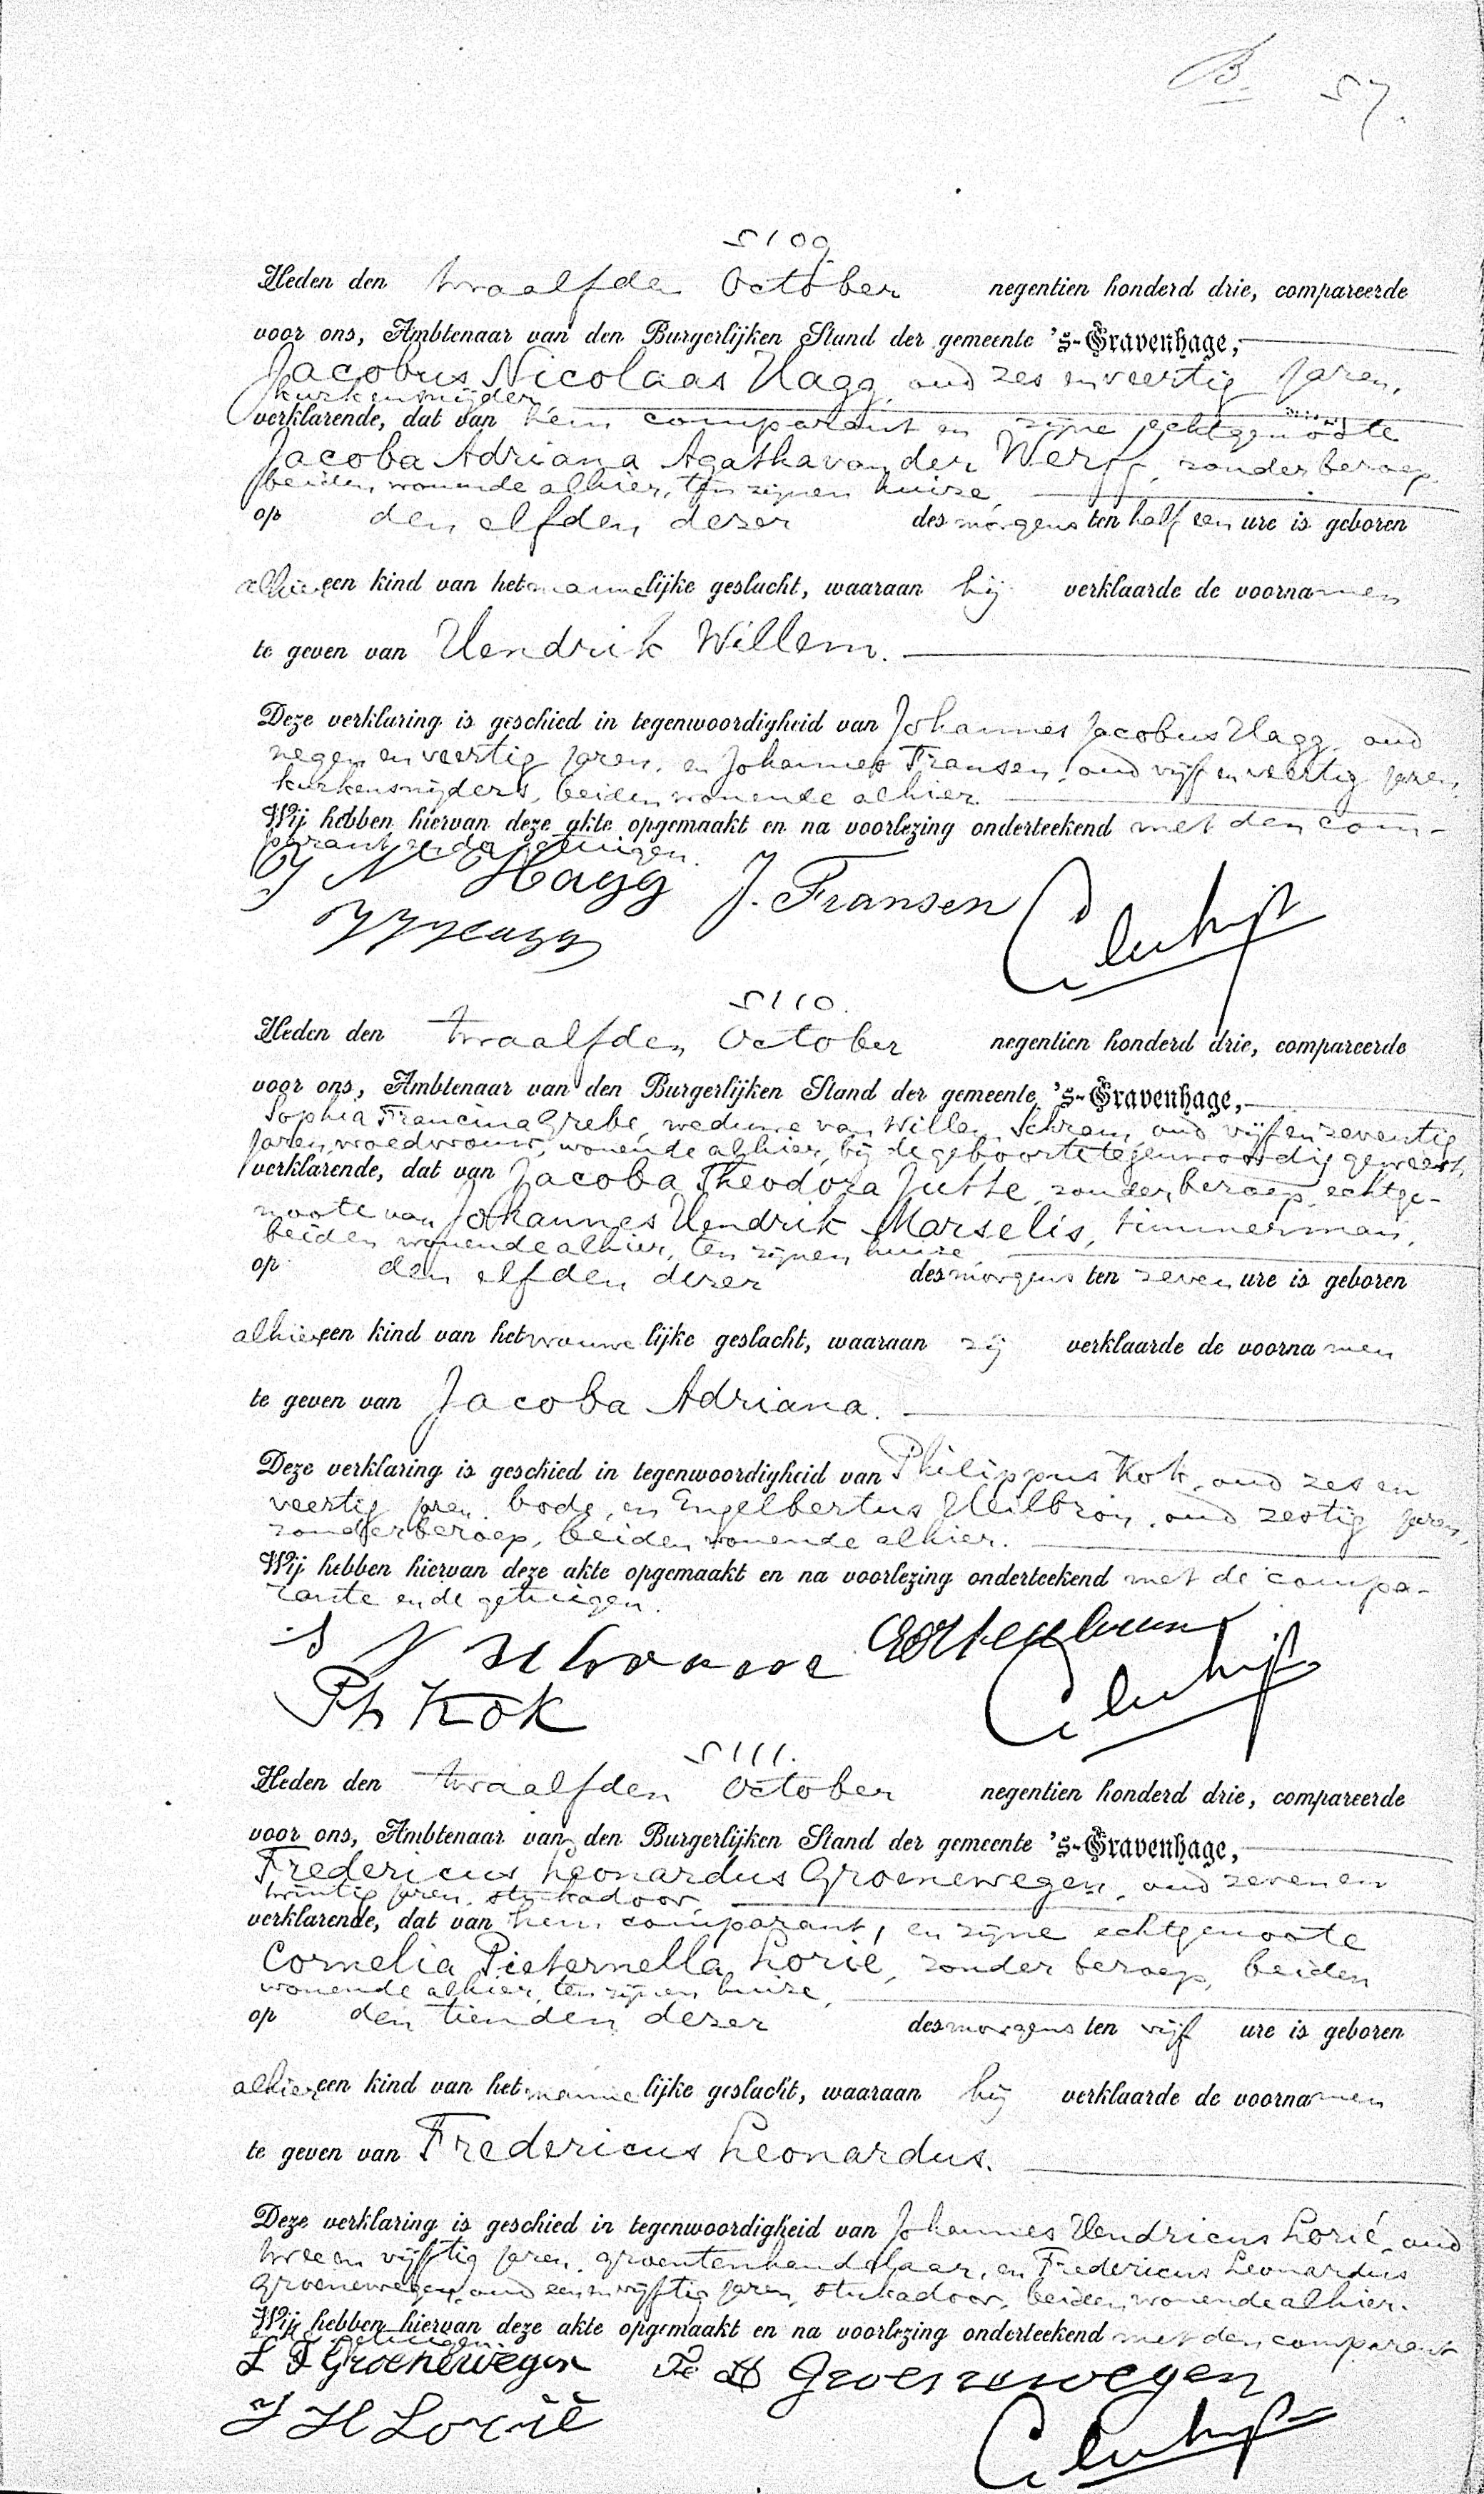 B. 57.
5109.
Heden den twaalfden October negentien honderd drie, compareerde
voor ons, Ambtenaar van den Burgerlijken Stand der gemeente 's-Gravenhage,
Jacobus Nicolaas Hagg, oud zes en veertig jaren,
kurkensnijder,
verklarende, dat van hem comparant en zijne echtgenoote
Jacoba Adriana Agatha van der Werff, zonder beroep,
beiden wonende alhier, ten zijnen huize,
op den elfden dezer des morgens ten half een ure is geboren
alhier een kind van het mannelijke geslacht, waaraan hij verklaarde de voornamen
te geven van Hendrik Willem.
Deze verklaring is geschied in tegenwoordigheid van Johannes Jacobus Hagg, oud
negen en veertig jaren, en Johannes Fransen, oud vijf en veertig jaren,
kurkensnijders, beiden wonende alhier.
Wij hebben hiervan deze akte opgemaakt en na voorlezing onderteekend met den com-
parant en de getuigen.
J N Hagg J. Fransen
J J Hagg
5110.
Heden den twaalfden October negentien honderd drie, compareerde
voor ons, Ambtenaar van den Burgerlijken Stand der gemeente 's-Gravenhage,
Sophia Francina Grebe, weduwe van Willem Schram, oud vijf en zeventig
jaren, vroedvrouw, wonende alhier, bij de geboorte tegenwoordig geweest,
verklarende, dat van Jacoba Theodora Jutte, zonder beroep, echtge-
noote van Johannes Hendrik Marselis, timmerman,
beiden wonende alhier, ten zijnen huize
op den elfden dezer des morgens ten zeven ure is geboren
alhier een kind van het vrouwelijke geslacht, waaraan zij verklaarde de voornamen
te geven van Jacoba Adriana.
Deze verklaring is geschied in tegenwoordigheid van Philippus Kok, oud zes en
veertig jaren, bode, en Engelbertus Heilbron, oud zestig jaren,
zonder beroep, beiden wonende alhier.
Wij hebben hiervan deze akte opgemaakt en na voorlezing onderteekend met de compa-
rante en de getuigen.
Ph Kok
5111.
Heden den twaalfden October negentien honderd drie, compareerde
voor ons, Ambtenaar van den Burgerlijken Stand der gemeente 's-Gravenhage,
Fredericus Leonardus Groenewegen, oud zeven en
twintig jaren, stukadoor,
verklarende, dat van hem comparant, en zijne echtgenoote
Cornelia Pieternella Lorié, zonder beroep, beiden
wonende alhier, ten zijnen huize,
op den tienden dezer des morgens ten vijf ure is geboren
alhier een kind van het mannelijke geslacht, waaraan hij verklaarde de voornamen
te geven van Fredericus Leonardus.
Deze verklaring is geschied in tegenwoordigheid van Johannes Hendricus Lorié, oud
twee en vijftig jaren, groentenhandelaar, en Fredericus Leonardus
Groenewegen, oud een en vijftig jaren, stukadoor, beiden wonende alhier.
Wij hebben hiervan deze akte opgemaakt en na voorlezing onderteekend met den comparant
en de getuigen.
L F Groenewegen Groenewegen
J H Lorié